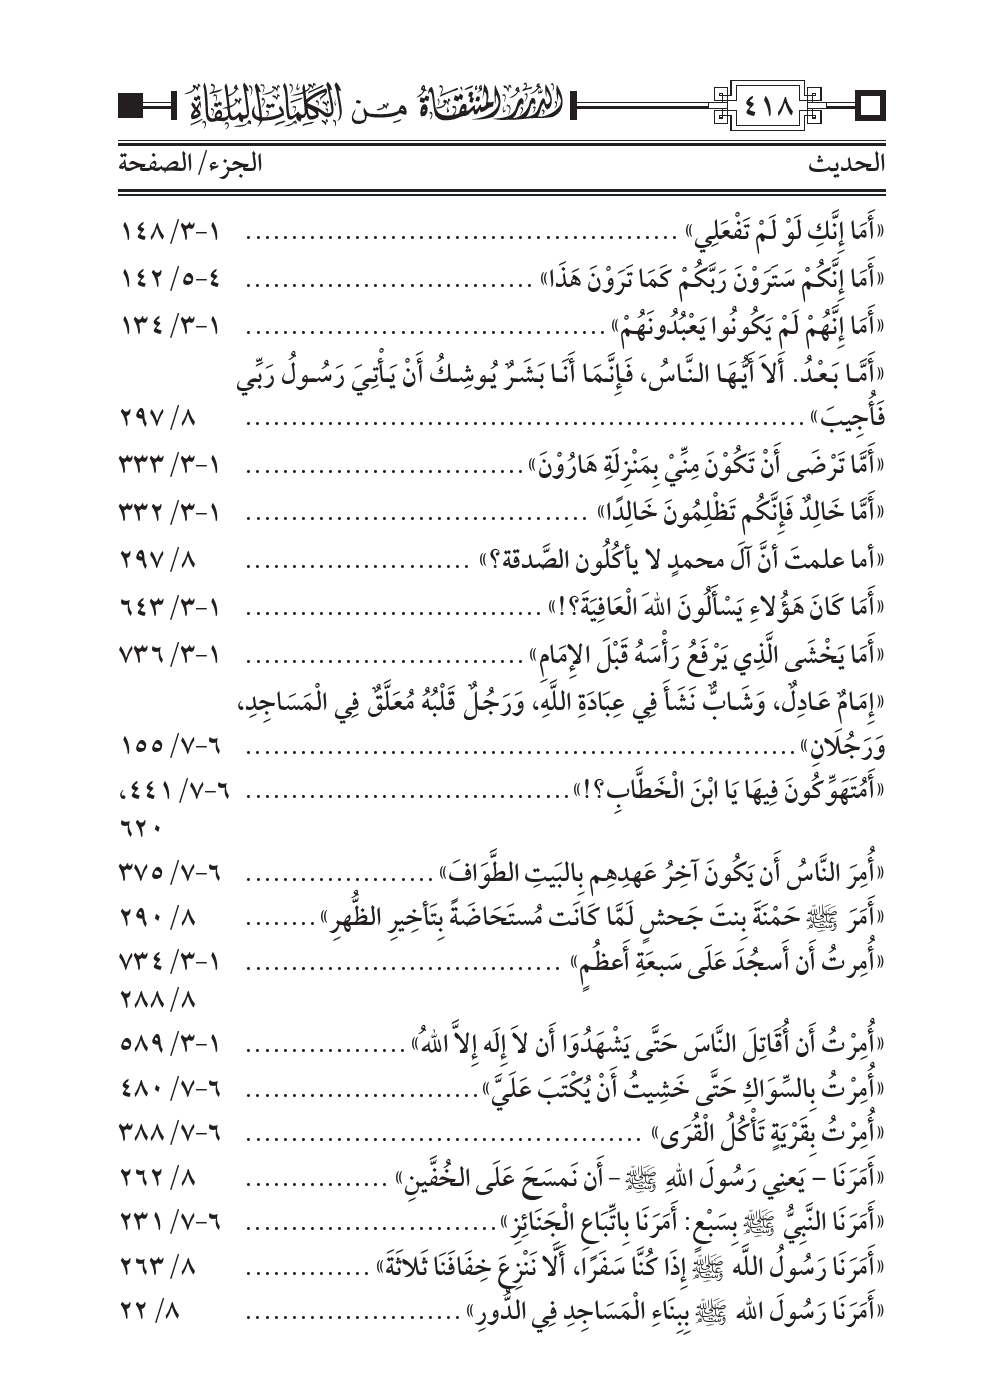 ٤١٨ الدُّرَرُ المُنْتَقَاةُ مِـن الكَلِمَاتِ المُلْقَاةِ
الحديث الجزء/ الصفحة
«أَمَا إِنَّكِ لَوْ لَمْ تَفْعَلِي» ................................................ ١-٣/ ١٤٨
«أَمَا إِنَّكُمْ سَتَرَوْنَ رَبَّكُمْ كَمَا تَرَوْنَ هَذَا» ................................ ٤-٥/ ١٤٢
«أَمَا إِنَّهُمْ لَمْ يَكُونُوا يَعْبُدُونَهُمْ» ........................................ ١-٣/ ١٣٤
«أَمَّـا بَـعْـدُ. أَلاَ أَيُّـهَـا الـنَّـاسُ، فَـإِنَّـمَـا أَنَـا بَـشَـرٌ يُـوشِـكُ أَنْ يَـأْتِـيَ رَسُـولُ رَبِّـي
فَأُجِيبَ» .............................................................. ٨/ ٢٩٧
«أَمَّا تَرْضَى أَنْ تَكُوْنَ مِنِّيْ بِمَنْزِلَةِ هَارُوْنَ» ............................... ١-٣/ ٣٣٣
«أَمَّا خَالِدٌ فَإِنَّكُم تَظْلِمُونَ خَالِدًا» ...................................... ١-٣/ ٣٣٢
«أما علمتَ أنَّ آلَ محمدٍ لا يأكُلُون الصَّدقة؟» ......................... ٨/ ٢٩٧
«أَمَا كَانَ هَؤُلاءِ يَسْأَلُونَ اللهَ الْعَافِيَةَ؟!» ................................. ١-٣/ ٦٤٣
«أَمَا يَخْشَى الَّذِي يَرْفَعُ رَأْسَهُ قَبْلَ الإِمَامِ» ............................... ١-٣/ ٧٣٦
«إِمَامٌ عَـادِلٌ، وَشَـابٌّ نَشَأَ فِي عِبَادَةِ اللَّهِ، وَرَجُلٌ قَلْبُهُ مُعَلَّقٌ فِي الْمَسَاجِدِ،
وَرَجُلَانِ» ............................................................. ٦-٧/ ١٥٥
«أَمُتَهَوِّكُونَ فِيهَا يَا ابْنَ الْخَطَّابِ؟!» .................................... ٦-٧/ ٤٤١،
٦٢٠
«أُمِرَ النَّاسُ أَن يَكُونَ آخِرُ عَهدِهِم بِالبَيتِ الطَّوَافَ» ..................... ٦-٧/ ٣٧٥
«أَمَرَ ﷺ حَمْنَةَ بِنتَ جَحشٍ لَمَّا كَانَت مُستَحَاضَةً بِتَأخِيرِ الظُّهرِ» ........ ٨/ ٢٩٠
«أُمِرتُ أَن أَسجُدَ عَلَى سَبعَةِ أَعظُمٍ» ................................... ١-٣/ ٧٣٤
٨/ ٢٨٨
«أُمِرْتُ أَن أُقَاتِلَ النَّاسَ حَتَّى يَشْهَدُوَا أَن لاَ إِلَه إِلاَّ اللهُ» .................. ١-٣/ ٥٨٩
«أُمِرْتُ بِالسِّوَاكِ حَتَّى خَشِيتُ أَنْ يُكْتَبَ عَلَيَّ» .......................... ٦-٧/ ٤٨٠
«أُمِرْتُ بِقَرْيَةٍ تَأْكُلُ الْقُرَى» ............................................ ٦-٧/ ٣٨٨
«أَمَرَنَا – يَعنِي رَسُولَ اللهِ ﷺ – أَن نَمسَحَ عَلَى الخُفَّينِ» ................ ٨/ ٢٦٢
«أَمَرَنَا النَّبِيُّ ﷺ بِسَبْعٍ: أَمَرَنَا بِاتِّبَاعِ الْجَنَائِزِ» ............................ ٦-٧/ ٢٣١
«أَمَرَنَا رَسُولُ اللَّه ﷺ إِذَا كُنَّا سَفَرًا، أَلَّا نَنْزِعَ خِفَافَنَا ثَلاثَةَ» .............. ٨/ ٢٦٣
«أَمَرَنَا رَسُولَ الله ﷺ بِبِنَاءِ الْمَسَاجِدِ فِي الدُّورِ» ........................ ٨/ ٢٢